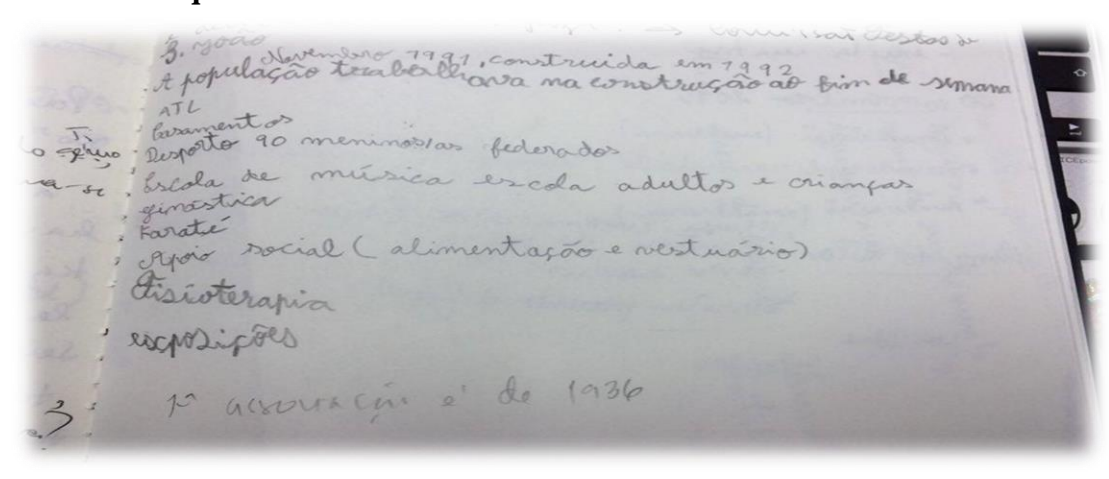 João
Novembro 1991, construida em 1992
A população trabalhava na construção ao fim de semana
ATL
Casamentos
Desporto 90 meninos/as federados
Escola de música escola adultos e crianças
ginástica
Karaté
Apoio social (alimentação e vestuário)
fisioterapia
exposições
1ª associação é de 1936